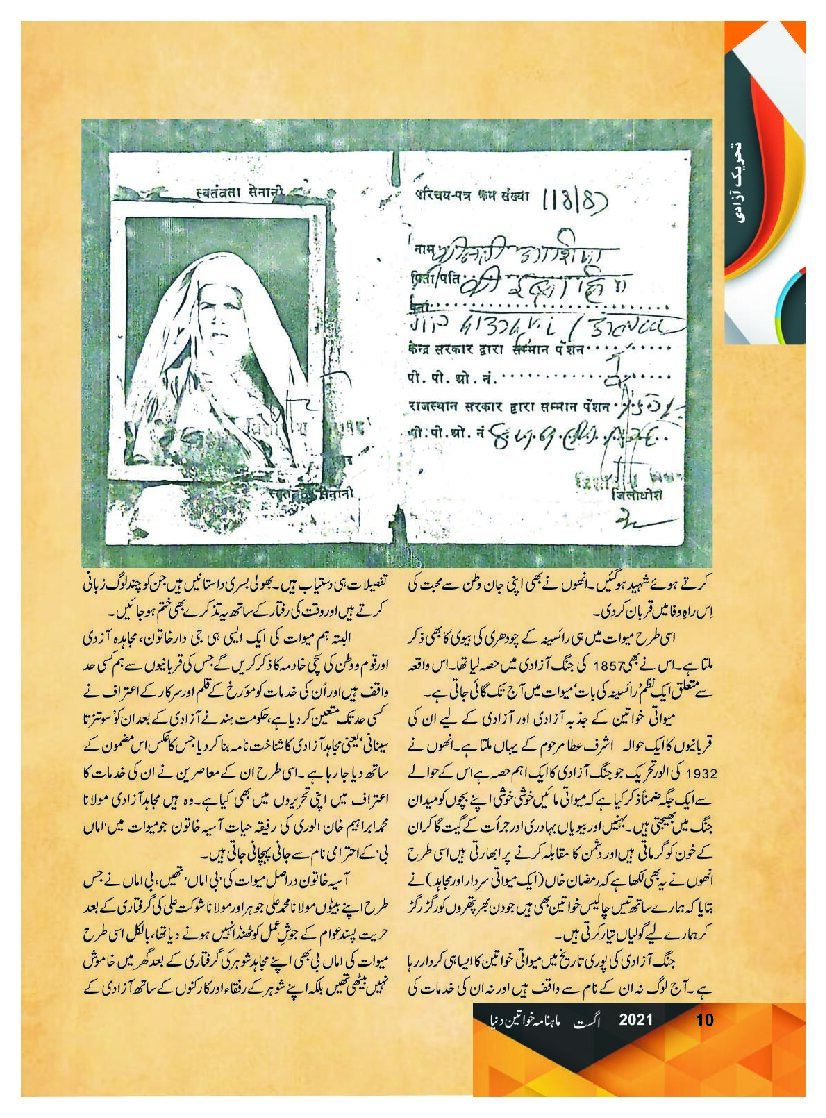 تحریک آزادی
स्वतंत्रता सेनानी
स्वतंत्रता सेनानी
परिचय-पत्र क्रम संख्या 118/87
नाम
पिता/पति
पता
केन्द्र सरकार द्वारा सम्मान पेंशन
पी. पी. ओ. नं.
राजस्थान सरकार द्वारा सम्मान पेंशन
पी. पी. ओ. नं
जिलाधीश
کرتے ہوئے شہید ہوگئیں۔ انھوں نے بھی اپنی جان وطن سے محبت کی
اِس راہِ وفا میں قربان کردی۔
اسی طرح میوات میں ہی رائسینہ کے چودھری کی بیوی کا بھی ذکر
ملتا ہے۔ اس نے بھی 1857 کی جنگ آزادی میں حصہ لیا تھا۔ اس واقعہ
سے متعلق ایک نظم 'رائسینہ کی بات' میوات میں آج تک گائی جاتی ہے۔
میواتی خواتین کے جذبہ آزادی اور آزادی کے لیے ان کی
قربانیوں کا ایک حوالہ اشرف عطا مرحوم کے یہاں ملتا ہے۔ انھوں نے
1932 کی الور تحریک جو جنگ آزادی کا ایک اہم حصہ ہے اس کے حوالے
سے ایک جگہ ضمناً ذکر کیا ہے کہ میواتی مائیں خوشی خوشی اپنے بچوں کو میدان
جنگ میں بھیجتی ہیں۔ بہنیں اور بیویاں بہادری اور جرأت کے گیت گا کر ان
کے خون کو گرماتی ہیں اور دشمن کا مقابلہ کرنے پر ابھارتی ہیں اسی طرح
انھوں نے یہ بھی لکھا ہے کہ رمضان خاں (ایک میواتی سردار اور مجاہد) نے
بتایا کہ ہمارے ساتھ تیس چالیس خواتین بھی ہیں جو دن بھر پتھروں کو رگڑ رگڑ
کر ہمارے لیے گولیاں تیار کرتی ہیں۔
جنگ آزادی کی پوری تاریخ میں میواتی خواتین کا ایسا ہی کردار رہا
ہے۔ آج لوگ نہ ان کے نام سے واقف ہیں اور نہ ان کی خدمات کی
تفصیلات ہی دستیاب ہیں۔ بھولی بسری داستانیں ہیں جن کو چند لوگ زبانی
کرتے ہیں اور وقت کی رفتار کے ساتھ یہ تذکرے بھی ختم ہوجائیں۔
البتہ ہم میوات کی ایک ایسی ہی جی دار خاتون، مجاہدہ آزدی
اور قوم و وطن کی سچی خادمہ کا ذکر کریں گے جس کی قربانیوں سے ہم کسی حد
واقف ہیں اور اُن کی خدمات کو مؤرخ کے قلم اور سرکار کے اعتراف نے
کسی حد تک متعین کردیا ہے، حکومت ہند نے آزادی کے بعد ان کو 'سوتنترتا
سینانی' یعنی مجاہد آزادی کا شناخت نامہ بنا کر دیا جس کا عکس اس مضمون کے
ساتھ دیا جارہا ہے۔ اسی طرح ان کے معاصرین نے ان کی خدمات کا
اعتراف میں اپنی تحریروں میں بھی کیا ہے۔ وہ ہیں مجاہد آزادی مولانا
محمد ابراہیم خان الوری کی رفیقہ حیات آسیہ خاتون جو میوات میں 'اماں
بی' کے احترامی نام سے جانی پہچانی جاتی ہیں۔
آسیہ خاتون دراصل میوات کی 'بی اماں' تھیں، بی اماں نے جس
طرح اپنے بیٹوں مولانا محمد علی جوہر اور مولانا شوکت علی کی گرفتاری کے بعد
حریت پسند عوام کے جوشِ عمل کو ٹھنڈا نہیں ہونے دیا تھا، بالکل اسی طرح
میوات کی اماں بی بھی اپنے مجاہد شوہر کی گرفتاری کے بعد گھر میں خاموش
نہیں بیٹھی تھیں بلکہ اپنے شوہر کے رفقاء اور کارکنوں کے ساتھ آزادی کے
ماہنامہ خواتین دنیا اگست 2021 10